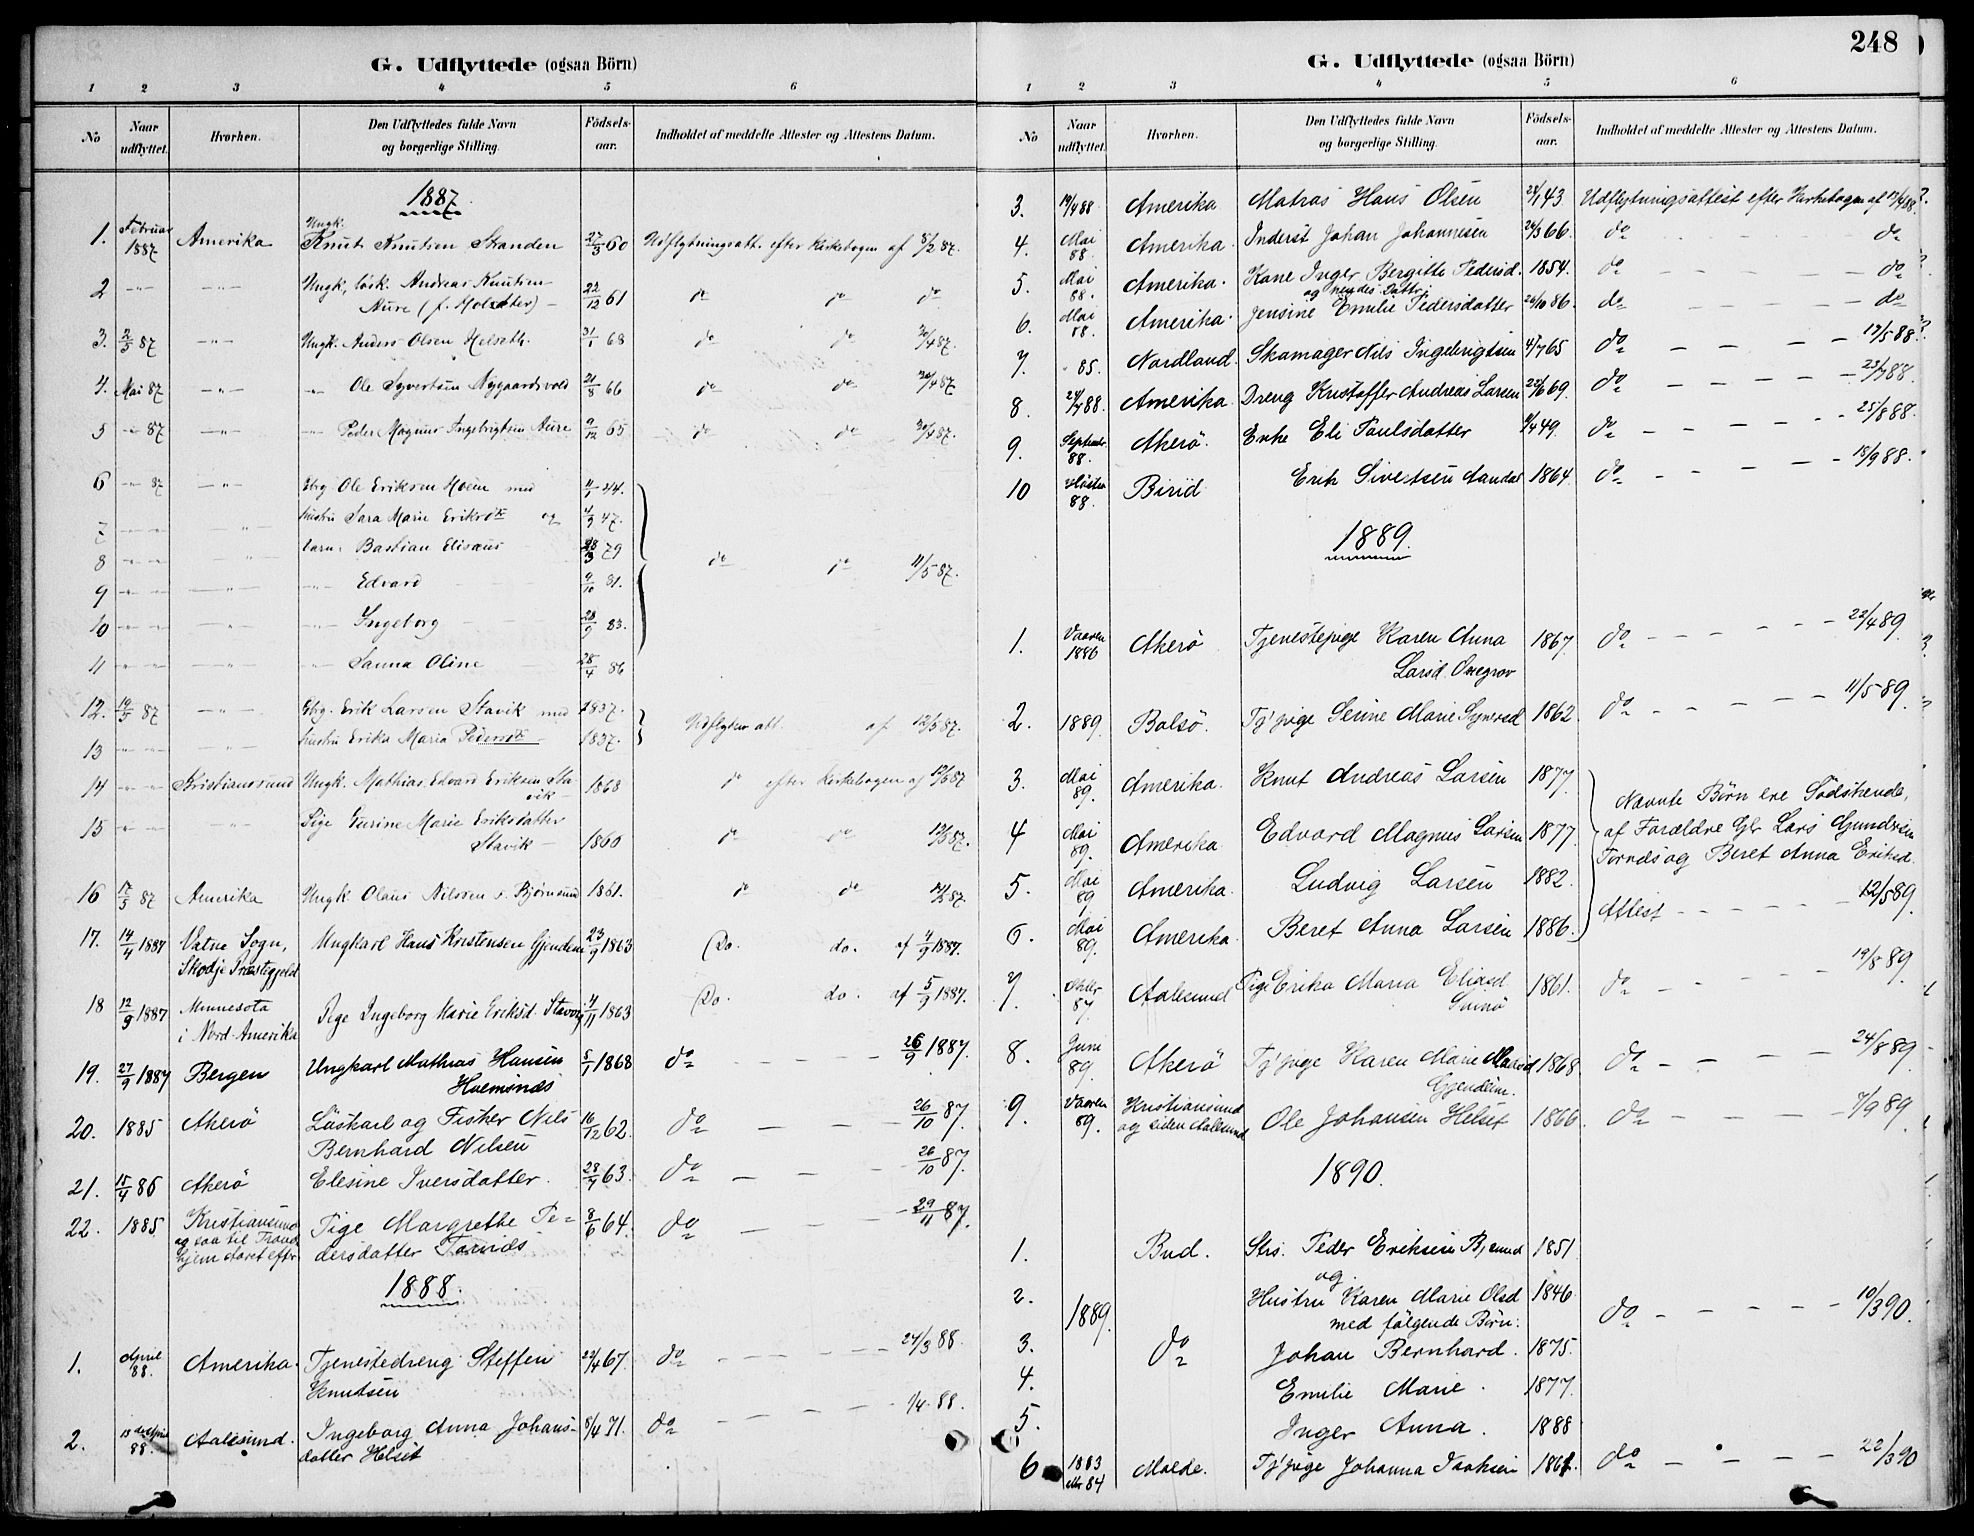 G. Udflyttede (ogsaa Börn)
1 2 3 4 5 6
No Naar udflyttet. Hvorhen. Den Udflyttedes fulde Navn og borgerlige Stilling. Födsels-aar. Indholdet af meddelte Attester og Attestens Datum.
1887.
1. Februar 1887 Amerika Ungk. Knut Knutsen Stranden 27/3 60 Udflytningsatt. efter Kirkebogen af 8/2 87.
2 -"- -"- Ungk. Andreas Knutsen
Aure 22/12 61 do do do
3. 2/5 87 -"- Ungk. Anders Olsen Helseth. 31/1 68 do do 30/4 87.
4. Mai 87 -"- -"- Ole Syvertsen Nygaardsvold 21/8 66 do do 30/4 87
5 -"- 87 -"- -"- Peder Magnus Ingebrigtsen Aure 9/12 65 do do 30/4 87.
6 -"- 87 -"- Gbrg. Ole Eriksen Hoem med 11/1 24.
7 -"- -"- Hustru Sara Marie Eriksdt og 4/9 47.
8 -"- -"- barn: Bastian Elisæus 28/3 79 do do 11/5 87.
9 -"- -"- -"- Edvard 9/10 81.
10 -"- -"- -"- Ingeborg 28/9 83.
11 -"- -"- -"- Sanna Oline 28/4 86
12. 19/5 87 -"- Gbrg. Erik Larsen Stavik med 1837. Udflytn. att. af 12/5 87.
13 -"- -"- Hustru Erika Maria Pedersdt 1837.
14 -"- Kristianssund Ungk. Mathias Edvard Eriksen Sta-
vik 1868 do efter Kirkebogen af 12/5 87
15 -"- -"- Pige Gurine Marie Eriksdatter
Stavik 1860 do do 12/5 87.
16 17/5 87 Amerika Ungk. Olaus Nilssen Bjørnsund 1861. do do
17. 14/4 1887 Vatne Sogn,
Skodje Præstegjeld Ungkarl Hans Kristensen Gjendem 23/9 1863 Do. do. af 4/9 1887.
18 12/9 1887 Minnesota
i Nord-Amerika Pige Ingeborg Marie Eriksd. Stavig 4/11 1863 Do. do. af 5/9 1887.
19. 27/9 1887 Bergen Ungkarl Mathias Hansen
Huemsnæs 5/1 1868 do 26/9 1887.
20. 1885 Akerö Läskarl og Fisker Nils
Bernhard Nilsen 16/12 62. do 26/10 87.
21. 15/4 86 Akerö Elesine Iversdatter. 28/4 63. do 26/10 87.
22. 1885 Kristiansund
og saa til Trond-
hjem Aaret efter Pige Margrethe Pe-
dersdatter Tornæs 8/6 64. do 29/11 87.
1888.
1. April 88. Amerika. Tjenestedreng Steffen
Knutsen 22/4 67. do 24/3 88.
2. 13de April 88. Aalesund. Ingeborg Anna Johans-
datter Helset 8/4 71. do 1/4 88.
248
G. Udflyttede (ogsaa Börn)
1 2 3 4 5 6
No Naar udflyttet. Hvorhen. Den Udflyttedes fulde Navn og borgerlige Stilling. Födsels-aar. Indholdet af meddelte Attester og Attestens Datum.
3. 19/4 88 Amerika Matros Hans Olsen 24/1 43 Udflytningsattest efter Kirkebogen af 19/4 88.
4. Mai 88. Amerika. Inderst Johan Johannesen 24/3 66. do do
5. Mai 88. Amerika. Kone Inger Bergitte Pedersd. 1854. do do
og hendes Dattr:
6. Mai 88. Amerika. Jensine Emilie Pedersdatter 26/10 86. do do
7. 85. Nordland. Skomager Nils Ingebrigtsen 4/7 65 do 17/5 88.
8. 24/7 88. Amerika. Dreng Kristoffer Andreas Larsen 22/6 69. do 23/7 88.
9. Septembr 88. Akerö. Enke Eli Paulsdatter 4/4 49. do 25/8 88.
10 Høsten 88. Birid Erik Sivertsen Aandal 1864. do 18/9 88.
1889.
1. Vaaren 1886 Akerö Tjenestepige Karen Anna
Larsd. Oxegrov 1867. do 22/4 89.
2. 1889. Bolsö. Tj'pige Serine Marie Syversd 1862. do 11/5 89.
3. Mai 89. Amerika. Knut Andreas Larsen 1877. Nævnte Børn ere Sødskende,
4 Mai 89. Amerika Edvard Magnus Larsen 1877. af Forældre Gbr. Lars Gundersen
Tornæs og Beret Anna Eriksd.
5. Mai 89 Amerika. Ludvig Larsen 1882. Attest 12/5 89.
6. Mai 89. Amerika. Beret Anna Larsen 1886.
7. 87. Aalesund Pige Erika Maria Eliasd. 1861. do 19/8 89.
8. Juni 89. Akerö Tj'pige Karen Marie
Gjendem. 1868. do 24/8 89.
9. Vaaren 89. Kristiansund
og siden Aalesund Ole Johansen Helset 1866. do 7/9 89.
1890.
1. Bud. Strs. Peder Eriksen Bj,sund 1851
og
2. 1889. Hustru Karen Marie Olsd 1846. do 10/3 90.
med følgende Børn:
3. do Johan Bernhard. 1875.
4. Emilie Marie. 1877.
5. Inger Anna. 1888
6 1883 eller 84 Molde. Tj'pige Johanna Isaksen do 22/3 90